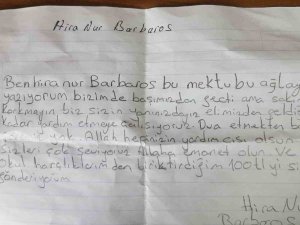 Hira Nur Barbaros
Ben hira nur Barbaros bu mektubu ağlay
yazıyorum bizimde başımızdan geçti ama sak
korkmayın biz sizin yanınızdayız elimizden geldi
kadar yardım etmeye çalışıyoruz. Dua etmekten b
yok. Allah hepinizin yardımcısı olsun
sizleri çok seviyoruz Allaha emanet olun. Ve
okul harçlıklarımdan biriktirdiğim 100 tl yi s
gönderiyorum
Hira Nu
Barbaros